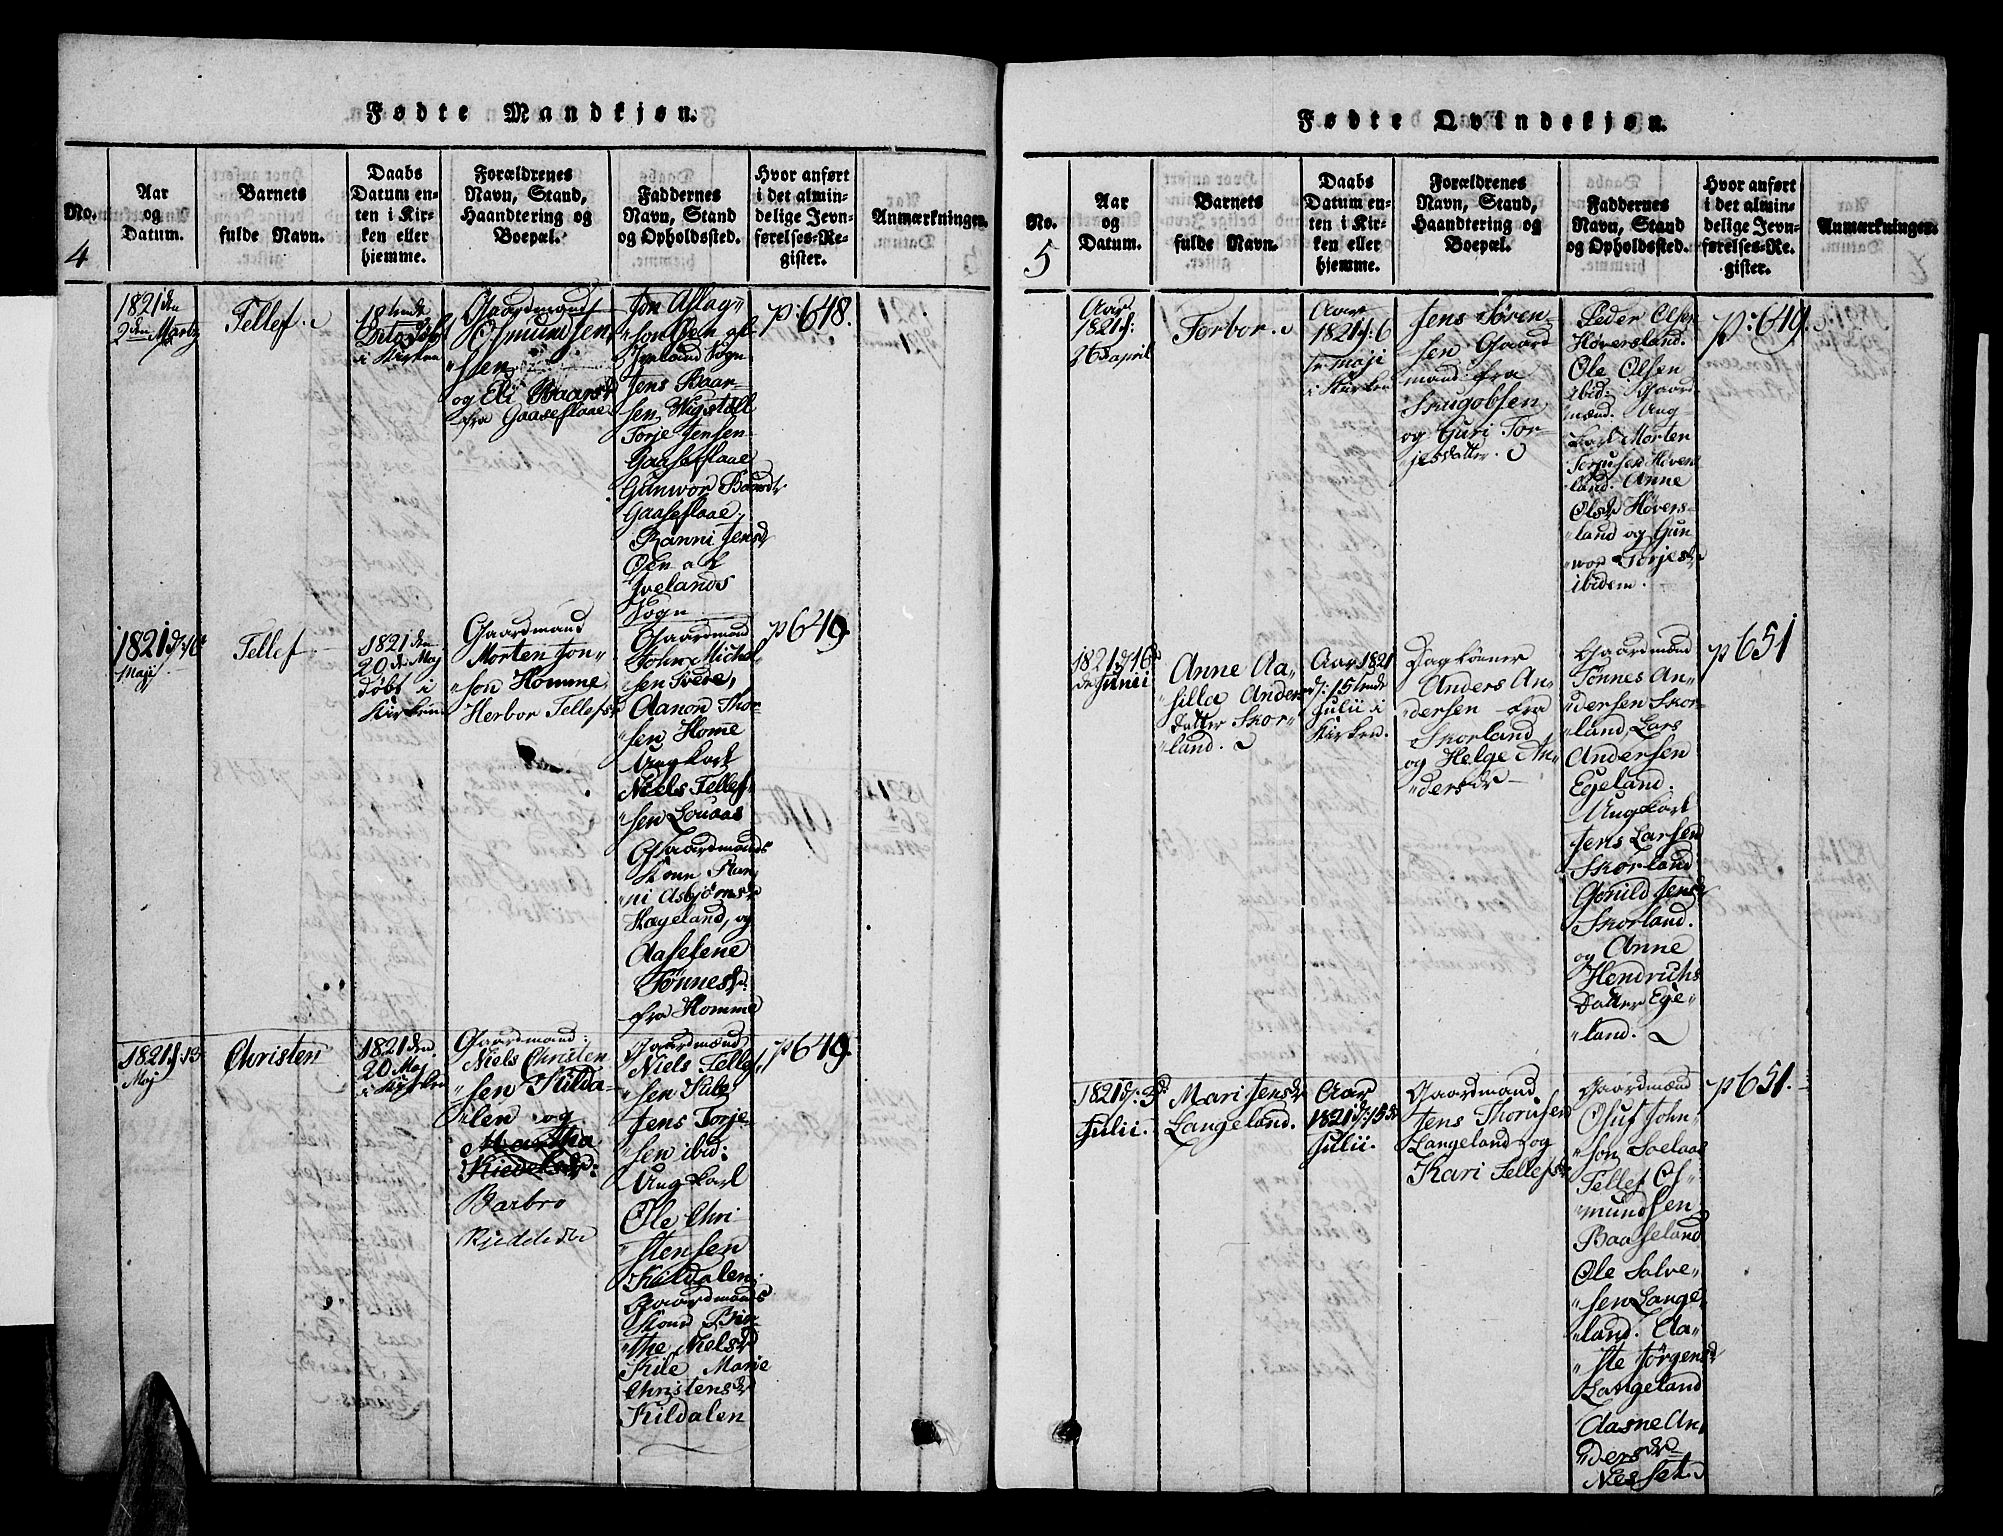 Fødte Mandkjøn.
No.
4
Aar
og
Datum.
Barnets
fulde Navn.
Daabs
Datum en-
ten i Kir-
ken eller
hjemme.
Forældrenes
Navn, Stand,
Haandtering og
Boepæl.
Faddernes
Navn, Stand
og Opholdssted.
Hvor anført
i det almin-
delige Jevn-
førelses-Re-
gister.
Anmærkninger.
1821 den
2den Martz
Tellef.
i Kirken
Gaardmand
Osmund Jen-
"sen
og Eli Baarsdr
fra Gaaseflaae
Jon Aslag"
"son Øen af
Iveland Sogn
Jens Baar-
sen Wigstøll
Torje Jensen
Gaaseflaae
Gunwor Baarsdr
Gaaseflaae,
Ranni Jensdr
Øen af
Ivelands
Sogn
p: 648.
1821 d: 16
Maji
Tellef.
1821 den
20de Maj
døbt i
Kirken
Gaardmand
Morten Jon-
"son Homme,
Herbor Tellefsdr
Gaardmænd
John Michel
sen Trede,
Aanon Thor-
"sen Home
Ungkarl
Niels Tellef-
sen Louaas
Gaardmands
Kone Ran-
"ni Asbjørnsdr
Hægeland, og
Aaselene
Tønnesdr.
fra Homme
p 649.
1821 d: 13
Maj
Christen
1821 den
20 Maj
i Kirken
Gaardmand:
Niels Christen
"sen Kilda-
"len og
Martha
Kiedelsdr:
Barbro
Kjeddelsdr
Gaardmænd
Niels Tellef"
"sen Kile
Jens Torje-
"sen ibid:
Ungkarl
Ole Chri-
"stensen
Kildalen.
Gaardmands
Kone Bir-
"the Nielsdr
Kile Marie
Christensdr
Kildalen
p 649.
Fødte Qvindekjøn.
No.
5
Aar
og
Datum.
Barnets
fulde Navn.
Daabs
Datum en-
ten i Kir-
ken eller
hjemme.
Forældrenes
Navn, Stand,
Haandtering og
Boepæl.
Faddernes
Navn, Stand
og Opholdssted.
Hvor anført
i det almin-
delige Jevn-
førelses-Re-
gister.
Anmærkninger.
Aar
1821 d:
26 april
Torbor.
Aar
1821 d: 6
te maji
i Kirken
Jens Søren-
sen Gaard
mand fra
Skugobsen
og Guri Tor-
jesdatter.
Peder Olsen
Høversland.
Ole Olsen
ibid: Gaard
mænd. Ung-
karl Morten
Torjusen Høvers
land. Anne
Olsdr Høvers-
"land og Gun
wor Torjesdr
ibidem.
p: 649.
1821 d 16
de Junii
Anne Aa-
"silla Anders
datter Skor-
"land.
Aar 1821
d: 15tende
Julii i
Kirken.
Daglønner
Anders An-
"dersen fra
Skorland
og Helge An-
"dersdr
Gaardmænd
Tønnes An-
"dersen Skor-
land, Lars
Andersen
Egeland.
Ungkarl
Jens Larsen
Skorland
Goruld Jensdr
Skorland.
og Anne
Hendrichs
datter Ege-
"land.
p 651
1821 d: 3de
Julii.
Mari Jensdr
Langeland.
Aar
1821 d: 15de
Julii.
Gaardmand
Jens Thorusen
Langeland og
Kari Tellefsdr
Gaardmænd
Oluf John-
"son Soelaas
Tellef Os-
"mundsen
Baaseland
Ole Salve-
"sen Lange-
"land. Aa-
"ste Jørgensdr
Langeland
Aasne An-
"dersdr
Nesset.
p 651.